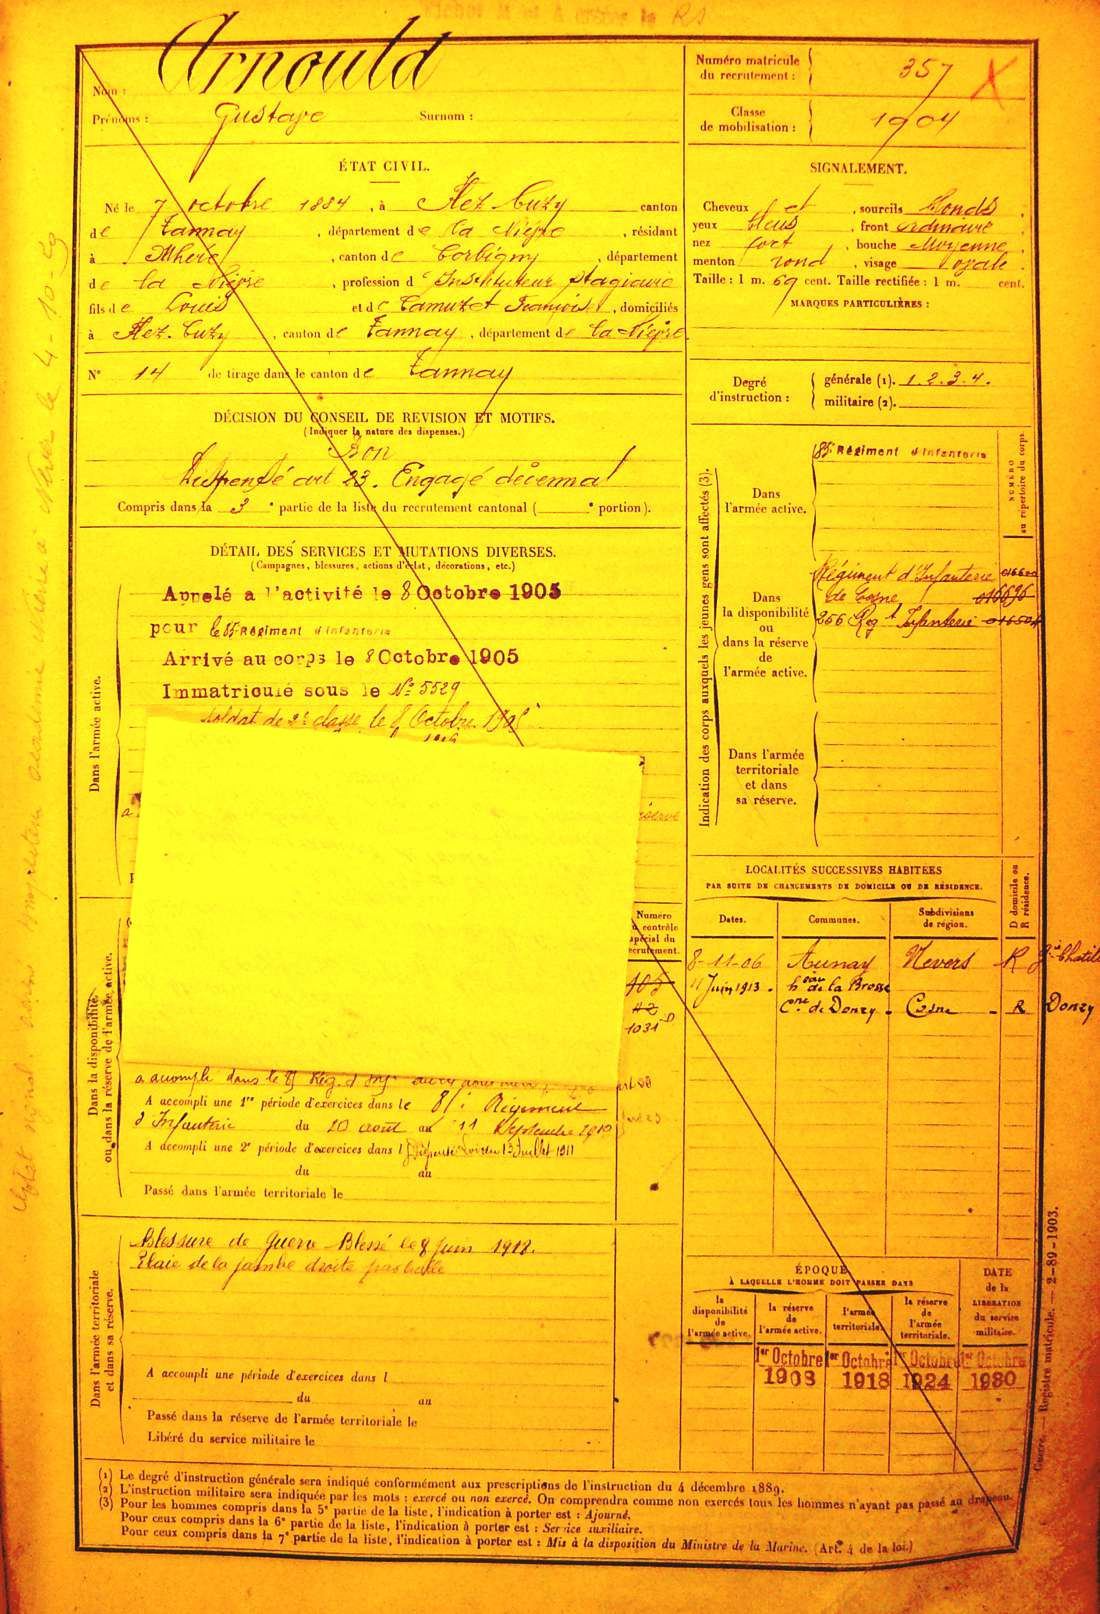 Nom : Arnould
Prénoms : Gustave Surnom :
Numéro matricule du recrutement : 357
Classe de mobilisation : 1904
ÉTAT CIVIL.
Né le 7 octobre 1884, à Flez-Cuzy canton
de Tannay, département de la Nièvre, résidant
à Mhère, canton de Corbigny, département
de la Nièvre, profession d'Instituteur stagiaire
fils de Louis et de Camuzet Françoise, domiciliés
à Flez-Cuzy, canton de Tannay, département de la Nièvre.
N° 14 de tirage dans le canton de Tannay
SIGNALEMENT.
Cheveux et, sourcils blonds,
yeux bleus, front ordinaire,
nez fort, bouche moyenne,
menton rond, visage ovale.
Taille : 1 m. 69 cent. Taille rectifiée : 1 m. cent.
MARQUES PARTICULIÈRES :
Degré d'instruction : générale (1). 1.2.3.4.
militaire (2).
DÉCISION DU CONSEIL DE REVISION ET MOTIFS.
(Indiquer la nature des dispenses.)
Bon
Dispensé art 23. Engagé décennal
Compris dans la 3e partie de la liste du recrutement cantonal ( e portion).
DÉTAIL DES SERVICES ET MUTATIONS DIVERSES.
(Campagnes, blessures, actions d'éclat, décorations, etc.)
Dans l'armée active.
Appelé a l'activité le 8 Octobre 1905
pour le 85e Régiment d'Infanterie
Arrivé au corps le 8 Octobre 1905
Immatriculé sous le N° 5529
Soldat de 2e classe le 8 Octobre 1905
Indication des corps auxquels les jeunes gens sont affectés (3).
NUMÉRO au répertoire du corps.
Dans l'armée active.
85e Régiment d'Infanterie
Dans la disponibilité ou dans la réserve de l'armée active.
Régiment d'Infanterie
de Cosne
256 Regt Infanterie
Dans l'armée territoriale et dans sa réserve.
LOCALITÉS SUCCESSIVES HABITÉES
PAR SUITE DE CHANGEMENTS DE DOMICILE OU DE RÉSIDENCE.
Dates. Communes. Subdivisions de région. D domicile ou R résidence.
8-11-06 Aunay Nevers R
11 Juin 1913. heau de la Brosse
Cne de Donzy. Cosne R Donzy
Dans la disponibilité ou dans la réserve de l'armée active.
Numéro
contrôle
spécial du
recrutement.
105
42
1031
a accompli dans le
A accompli une 1re période d'exercices dans le 85e Régiment
d'Infanterie du 20 août au 11 Septembre 1910
A accompli une 2e période d'exercices dans l Dispensé Loi du 13 Juillet 1911
du au
Passé dans l'armée territoriale le
Dans l'armée territoriale et dans sa réserve.
Blessure de guerre Blessé le 8 juin 1918.
Plaie de la jambe droite par balle
A accompli une période d'exercices dans l
du au
Passé dans la réserve de l'armée territoriale le
Libéré du service militaire le
ÉPOQUE
À LAQUELLE L'HOMME DOIT PASSER DANS
DATE de la LIBÉRATION du service militaire.
la disponibilité de l'armée active.
la réserve de l'armée active.
l'armée territoriale.
la réserve de l'armée territoriale.
1er Octobre 1er Octobre 1er Octobre 1er Octobre
1908 1918 1924 1930
Registre matricule. — 2-89-1903.
(1) Le degré d'instruction générale sera indiqué conformément aux prescriptions de l'instruction du 4 décembre 1889.
(2) L'instruction militaire sera indiquée par les mots : exercé ou non exercé. On comprendra comme non exercés tous les hommes n'ayant pas passé au drapeau.
(3) Pour les hommes compris dans la 5e partie de la liste, l'indication à porter est : Ajourné.
Pour ceux compris dans la 6e partie de la liste, l'indication à porter est : Service auxiliaire.
Pour ceux compris dans la 7e partie de la liste, l'indication à porter est : Mis à la disposition du Ministre de la Marine. (Art. 4 de la loi.)